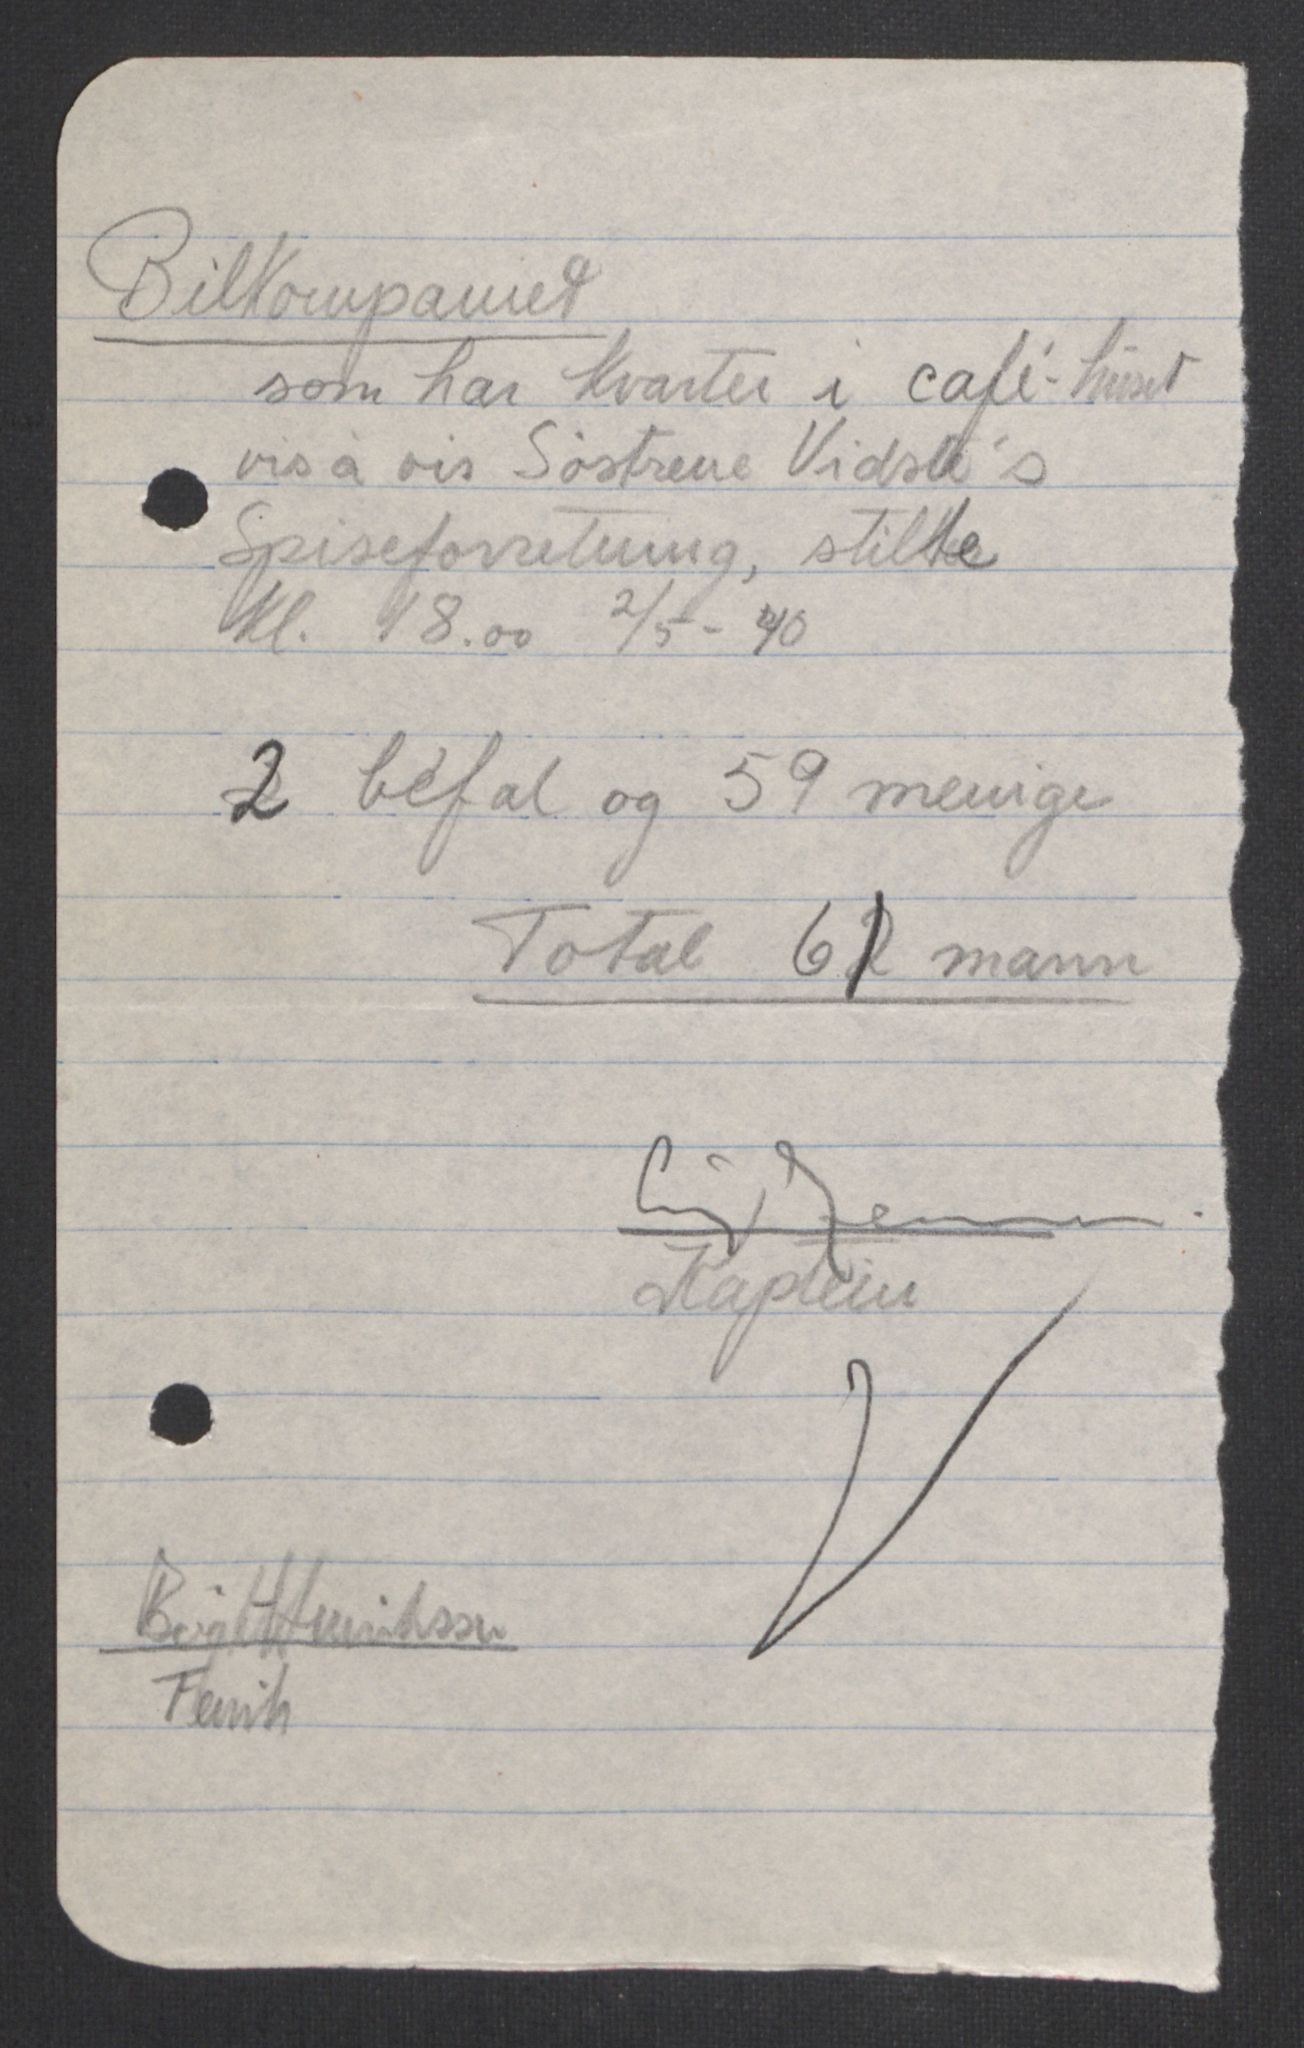 Bilkompaniet
som har kvarter i café-huset
vis à vis Søstrene
Spiseforretning, stillte
Kl. 18.00 2/5-40
2 befal og 59 menige
Total 61 mann
Kaptein
Henrikssen
Fenrik